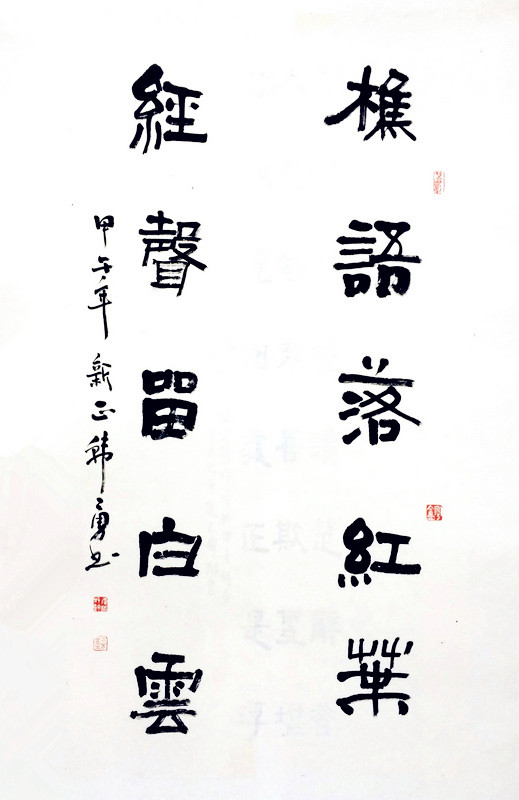 樵語落紅葉
經聲留白雲
甲午年新正韩勇书